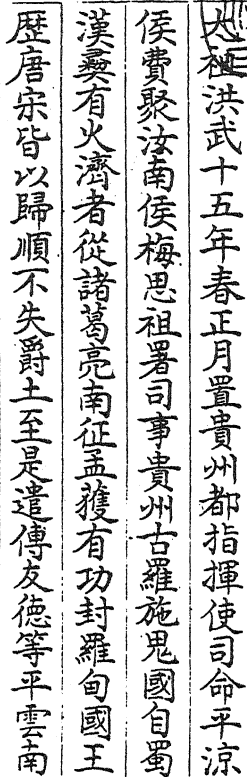 太極洪武十五年春正月置貴州都指揮使司命平涼
侯費聚汝南侯梅思祖署司事貴州古羅施鬼國自蜀
漢彞有火濟者從諸葛亮南征孟獲有功封羅甸國王
歴唐宋皆以歸順不失爵土至是遣傅友德等平雲南